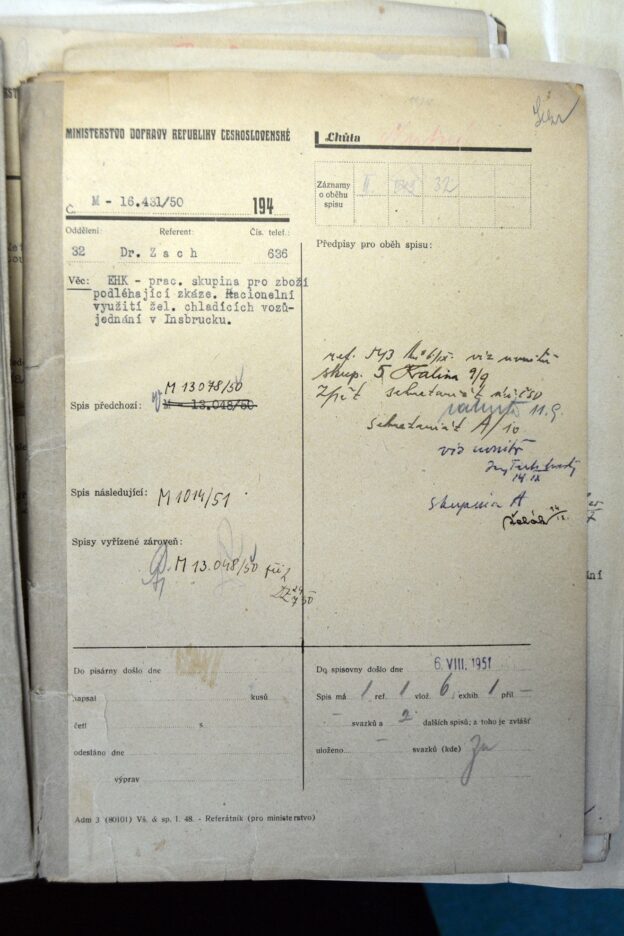 MINISTERSTVO DOPRAVY REPUBLIKY ČESKOSLOVENSKÉ
Č. M - 16.431/50 194
Oddělení: Referent: Čís. telef.:
32 Dr. Zach 636
Věc: EHK - prac. skupina pro zboží
podléhající zkáze. Racionelní
využití žel. chladících vozů-
jednání v Insbrucku.
M 13078/50
Spis předchozí: M - 13.048/50
Spis následující: M 1014/51
Spisy vyřízené zároveň:
M 13.048/50
Do písárny došlo dne
napsal kusů
četl s
odesláno dne
výprav
Adm 3 (80101) Vš. & sp. l. 48. - Referátník (pro ministerstvo)
Lhůta
Záznamy
o oběhu
spisu
II 32
Předpisy pro oběh spisu:
ref. viz uvnitř
skup. 5 Kalina 9/9
Zpět sekretariát
11.9.
sekretariát A/10
viz uvnitř
14
skupina A
Do spisovny došlo dne 6. VIII. 1951
Spis má 1 ref. 1 vlož. 6 exhib. 1 příl –
– svazků a 2 dalších spisů; z toho je zvlášť
uloženo svazků (kde)